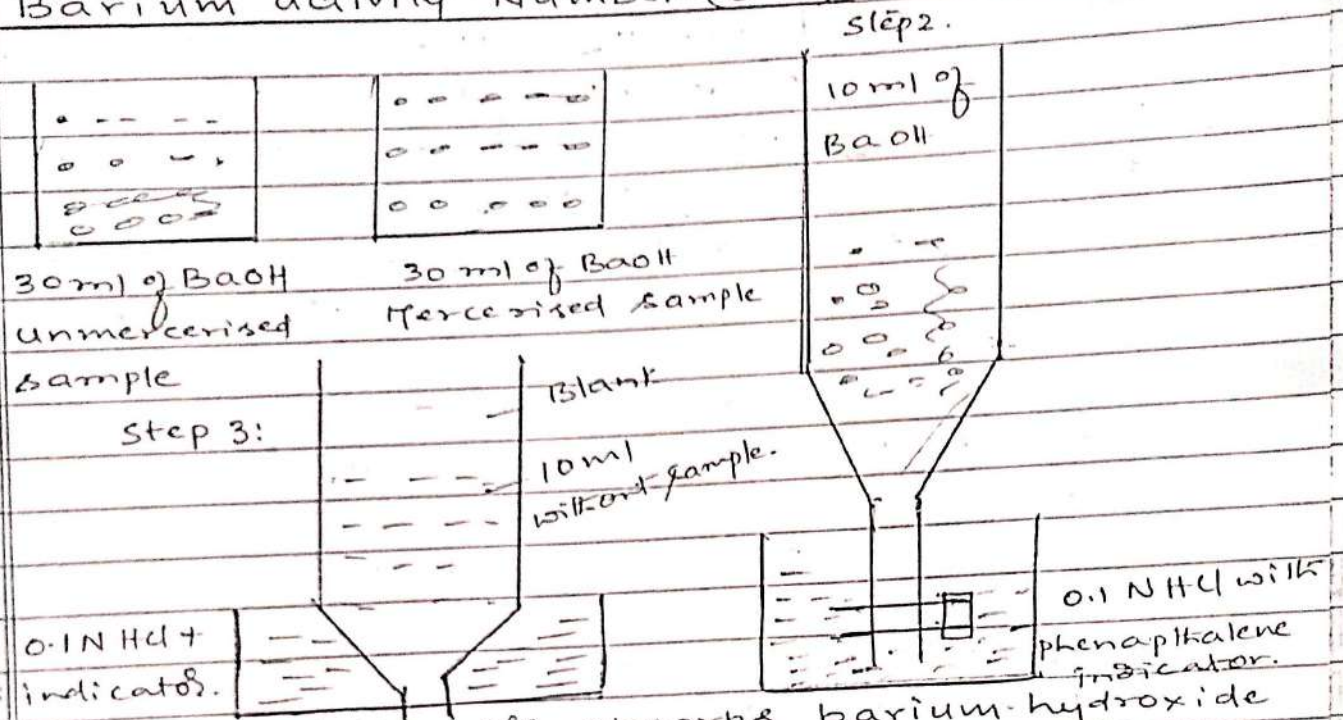 Barium activity Number
Step 2.
10 ml of
BaOH
30 ml of BaOH
unmercerised
sample
30 ml of BaOH
Mercerised sample
Step 3:
Blank
10 ml
without sample.
0.1 N HCl +
indicator.
0.1 N HCl with
phenapthalene
indicator.
barium hydroxide